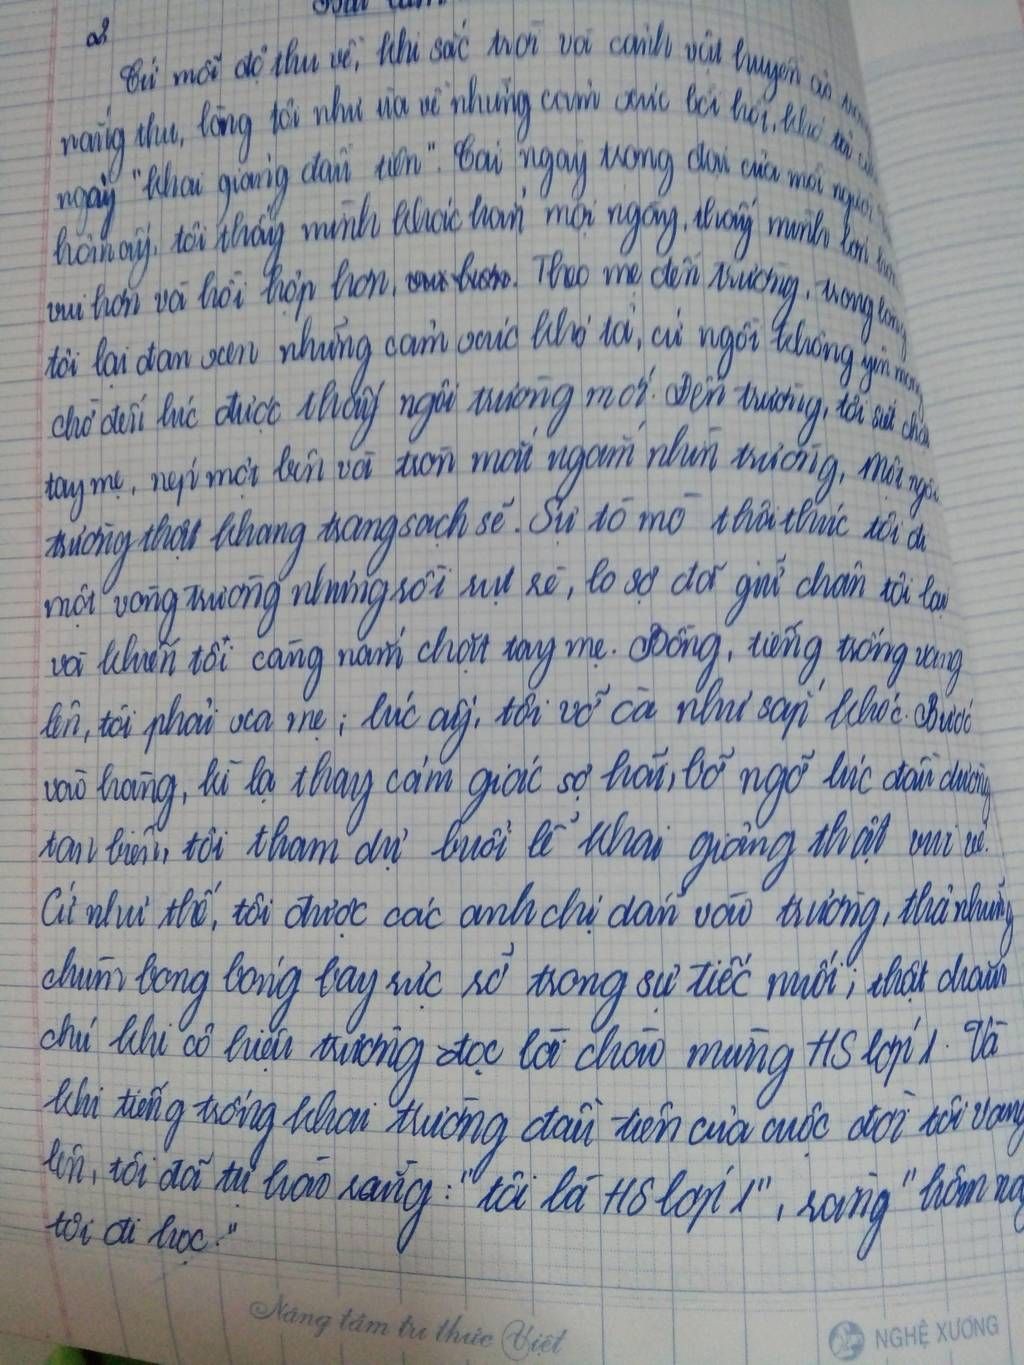 Bài làm
2
Cứ mỗi độ thu về, khi sắc trời và cảnh vật huyền ảo trong
nắng thu, lòng tôi như ùa về những cảm xúc bồi hồi, khó tả
ngày "khai giảng đầu tiên". Cái ngày trong đời của mỗi người
hôm ấy, tôi thấy mình khác hẳn mọi ngày, thấy mình lớn hơn
vui hơn và hồi hộp hơn. Theo mẹ đến trường, trong lòng
tôi lại đan xen những cảm xúc khó tả, cứ ngồi không yên mong
chờ đến lúc được thấy ngôi trường mới. Đến trường, tôi siết chặt
tay mẹ, nép một bên và tròn mắt ngắm nhìn trường, một ngôi
trường thật khang trang sạch sẽ. Sự tò mò thôi thúc tôi đi
một vòng trường nhưng rồi rụt rè, lo sợ đã giữ chân tôi lại
và khiến tôi càng nắm chặt tay mẹ. Bỗng, tiếng trống vang
lên, tôi phải xa mẹ, lúc ấy, tôi vỡ òa như sắp khóc. Bước
vào hàng, kì lạ thay cảm giác sợ hãi, bỡ ngỡ lúc đầu dường
tan biến, tôi tham dự buổi lễ khai giảng thật vui vẻ.
Cứ như thế, tôi được các anh chị dẫn vào trường, thả những
chùm bong bóng bay rực rỡ trong sự tiếc nuối, thật chăm
chú khi cô hiệu trưởng đọc lời chào mừng HS lớp 1. Và
khi tiếng trống khai trường đầu tiên của cuộc đời tôi vang
lên, tôi đã tự hào rằng: "tôi là HS lớp 1", rằng "hôm nay
tôi đi học."
Nâng tầm tri thức Việt
NGHỆ XƯƠNG